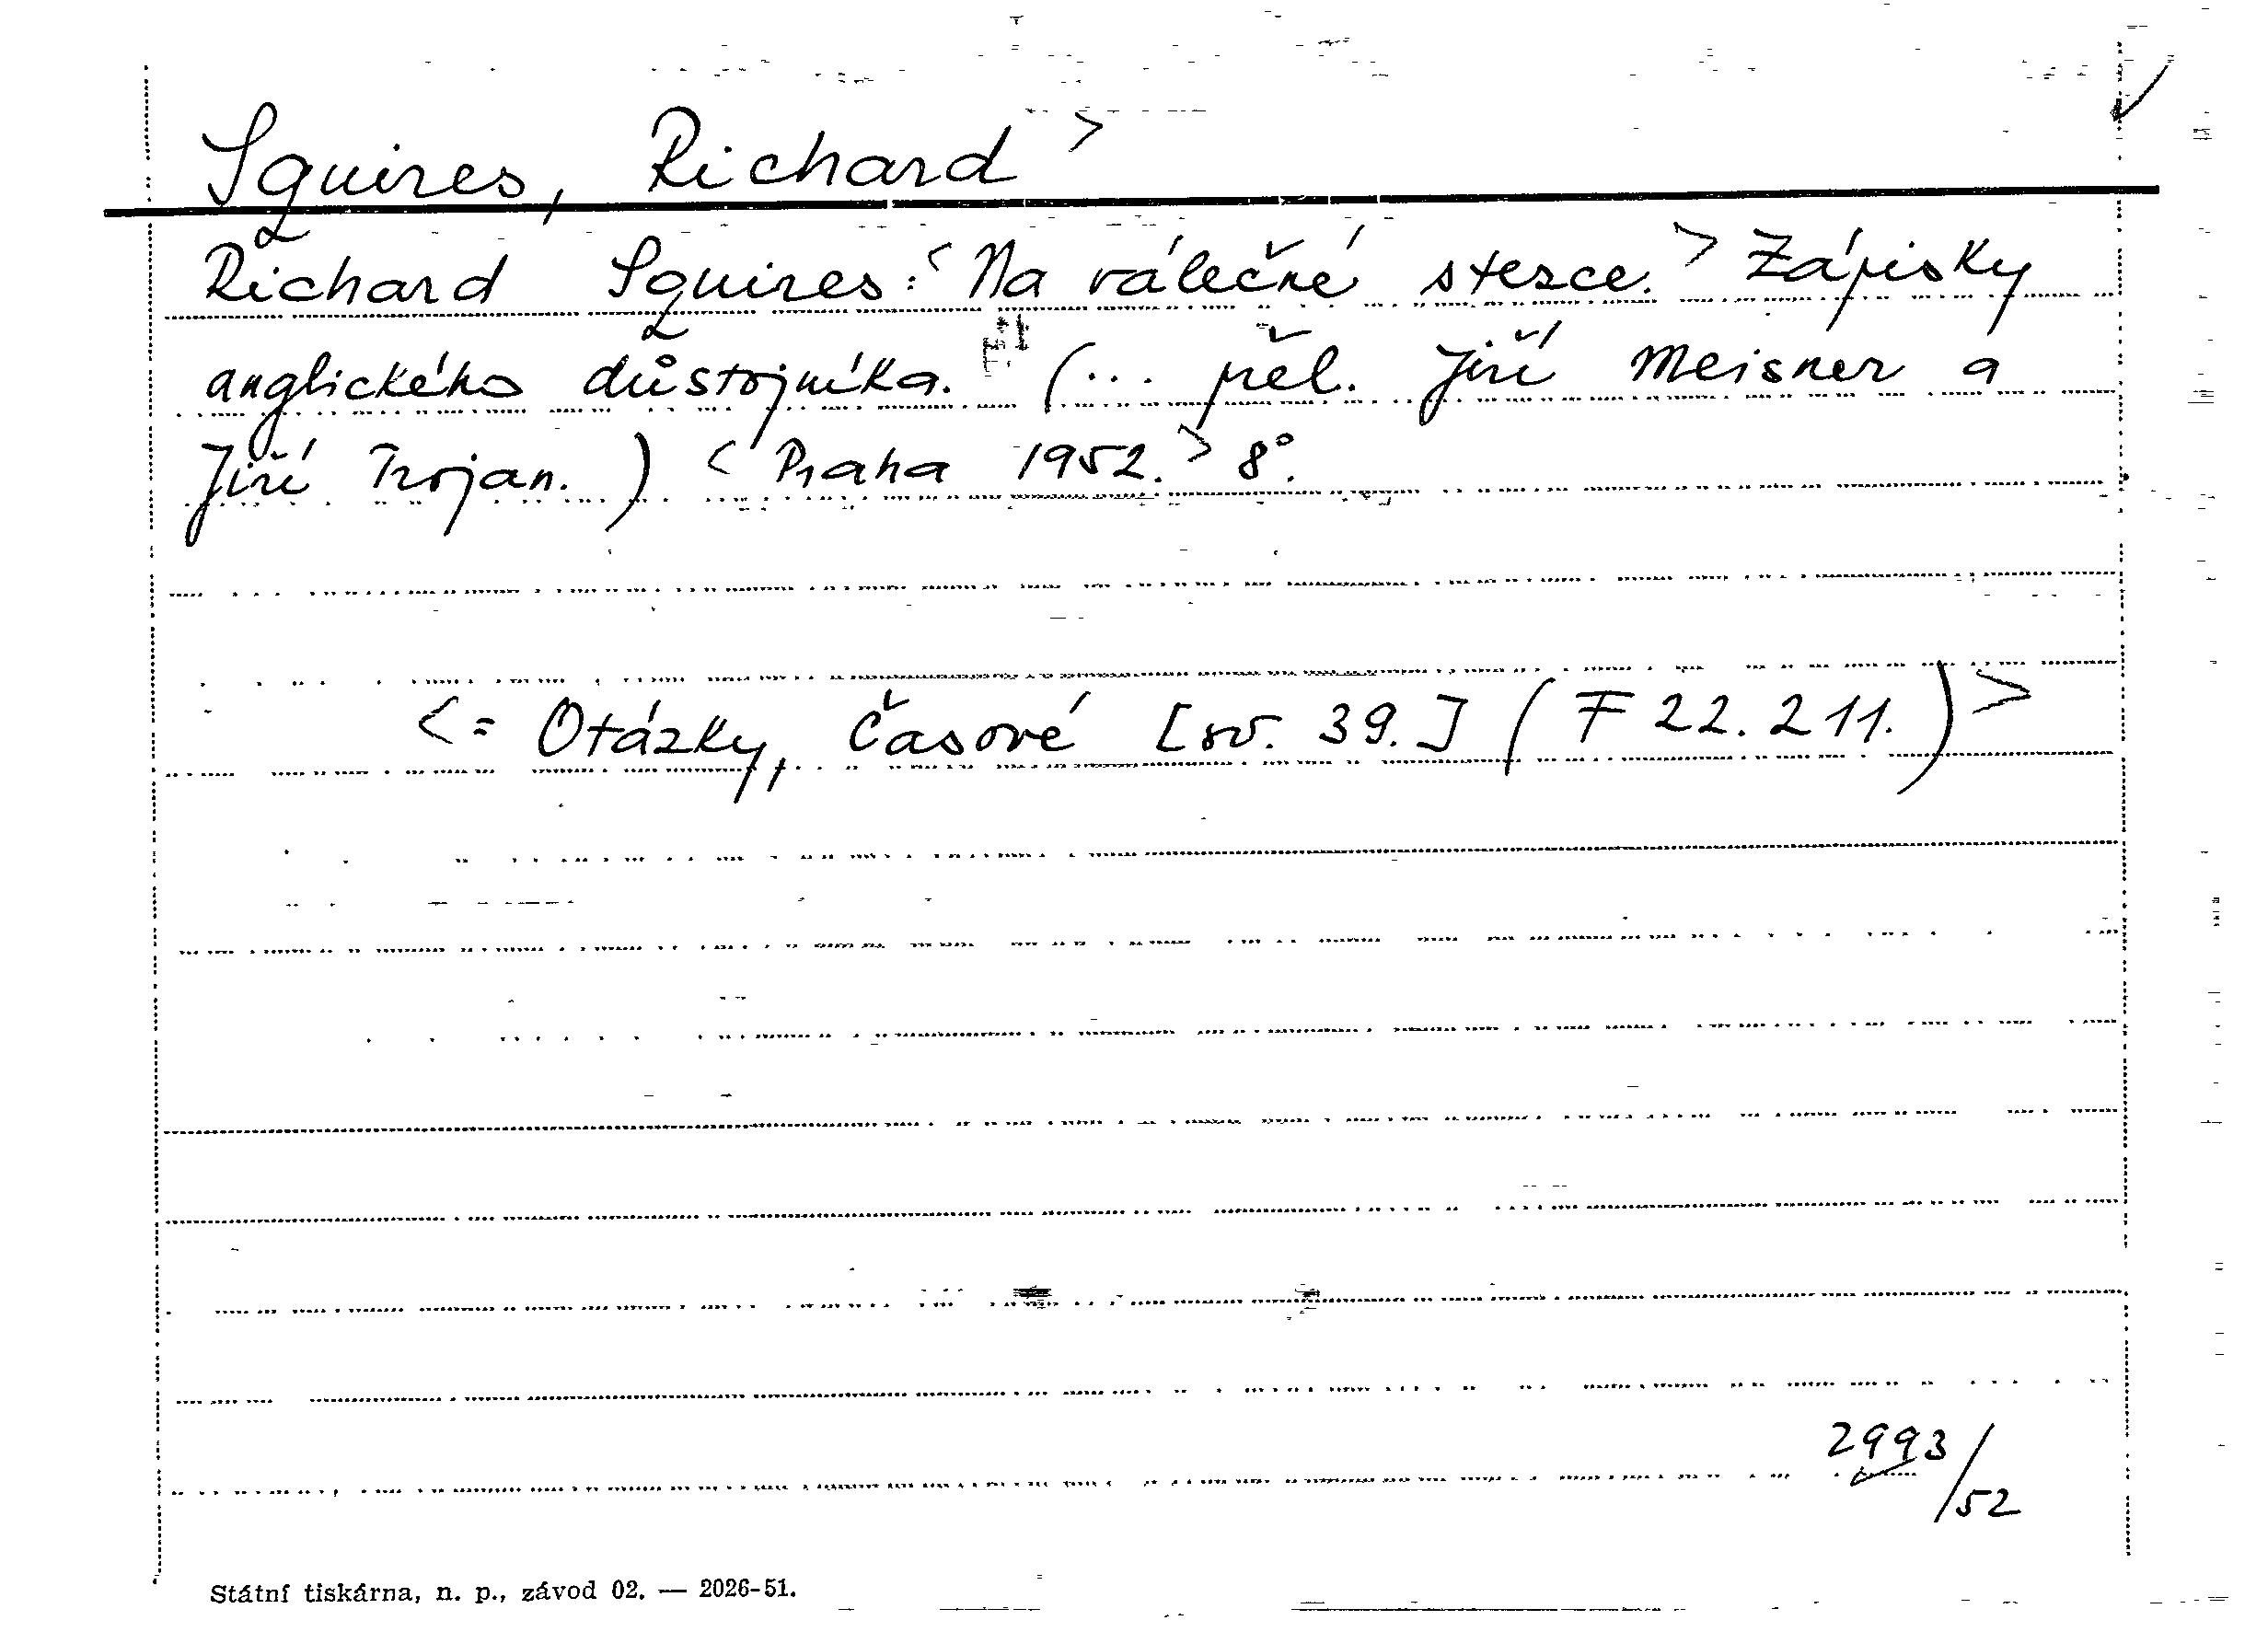 Squires, Richard >
Richard Squires: < Na válečné stezce. > Zápisky
anglického důstojníka. (... přel. Jiří Meisner a
Jiří Trojan.) < Praha 1952. > 8°.
< = Otázky, Časové [sv. 39.] (F 22.211.) >
2993/52
Státní tiskárna, n. p., závod 02. — 2026-51.